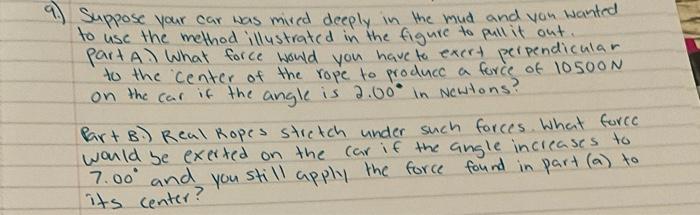 9.) Suppose your car was mired deeply in the mud and you wanted
to use the method illustrated in the figure to pull it out.
Part A.) What force would you have to exert perpendicular
to the center of the rope to produce a force of 10500N
on the car if the angle is 2.00° in Newtons?
Part B.) Real Ropes stretch under such forces. What force
would be exerted on the car if the angle increases to
7.00° and you still apply the force found in part (a) to
its center?